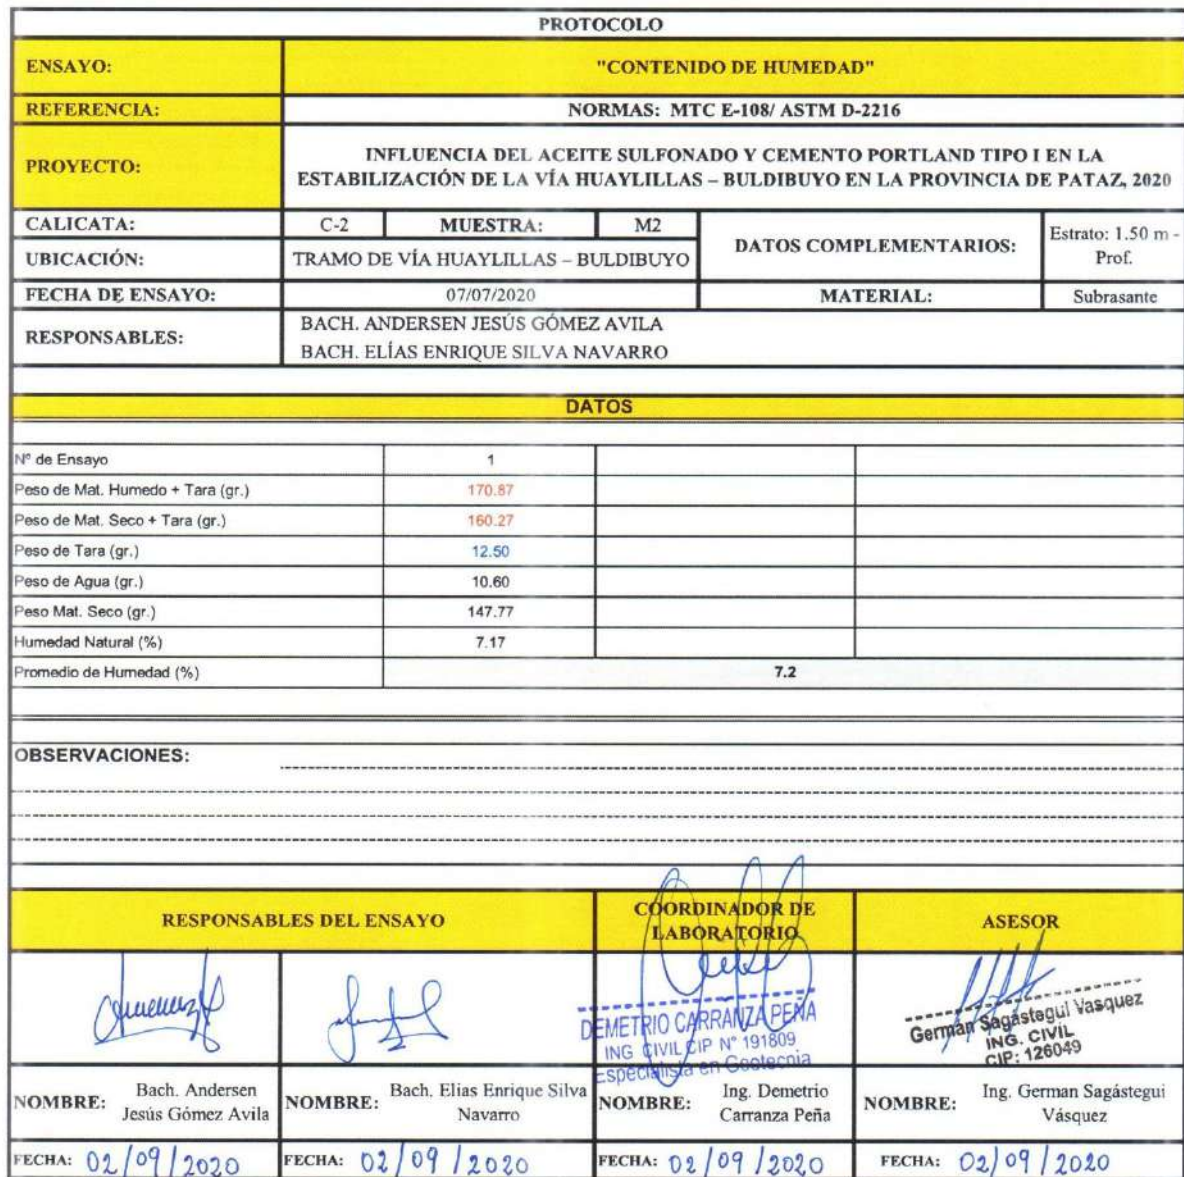 PROTOCOLO
ENSAYO: "CONTENIDO DE HUMEDAD"
REFERENCIA: NORMAS: MTC E-108/ ASTM D-2216
PROYECTO: INFLUENCIA DEL ACEITE SULFONADO Y CEMENTO PORTLAND TIPO I EN LA
ESTABILIZACIÓN DE LA VÍA HUAYLILLAS – BULDIBUYO EN LA PROVINCIA DE PATAZ, 2020
CALICATA: C-2 MUESTRA: M2 DATOS COMPLEMENTARIOS: Estrato: 1.50 m -
Prof.
UBICACIÓN: TRAMO DE VÍA HUAYLILLAS – BULDIBUYO
FECHA DE ENSAYO: 07/07/2020 MATERIAL: Subrasante
RESPONSABLES: BACH. ANDERSEN JESÚS GÓMEZ AVILA
BACH. ELÍAS ENRIQUE SILVA NAVARRO
DATOS
Nº de Ensayo 1
Peso de Mat. Humedo + Tara (gr.) 170.87
Peso de Mat. Seco + Tara (gr.) 160.27
Peso de Tara (gr.) 12.50
Peso de Agua (gr.) 10.60
Peso Mat. Seco (gr.) 147.77
Humedad Natural (%) 7.17
Promedio de Humedad (%) 7.2
OBSERVACIONES:
RESPONSABLES DEL ENSAYO COORDINADOR DE
LABORATORIO ASESOR
DEMETRIO CARRANZA PEÑA
ING CIVIL CIP N° 191809
Especialista en Geotecnia
German Sagástegui Vasquez
ING. CIVIL
CIP: 126049
NOMBRE: Bach. Andersen
Jesús Gómez Avila
NOMBRE: Bach. Elias Enrique Silva
Navarro
NOMBRE: Ing. Demetrio
Carranza Peña
NOMBRE: Ing. German Sagástegui
Vásquez
FECHA: 02/09/2020 FECHA: 02/09/2020 FECHA: 02/09/2020 FECHA: 02/09/2020